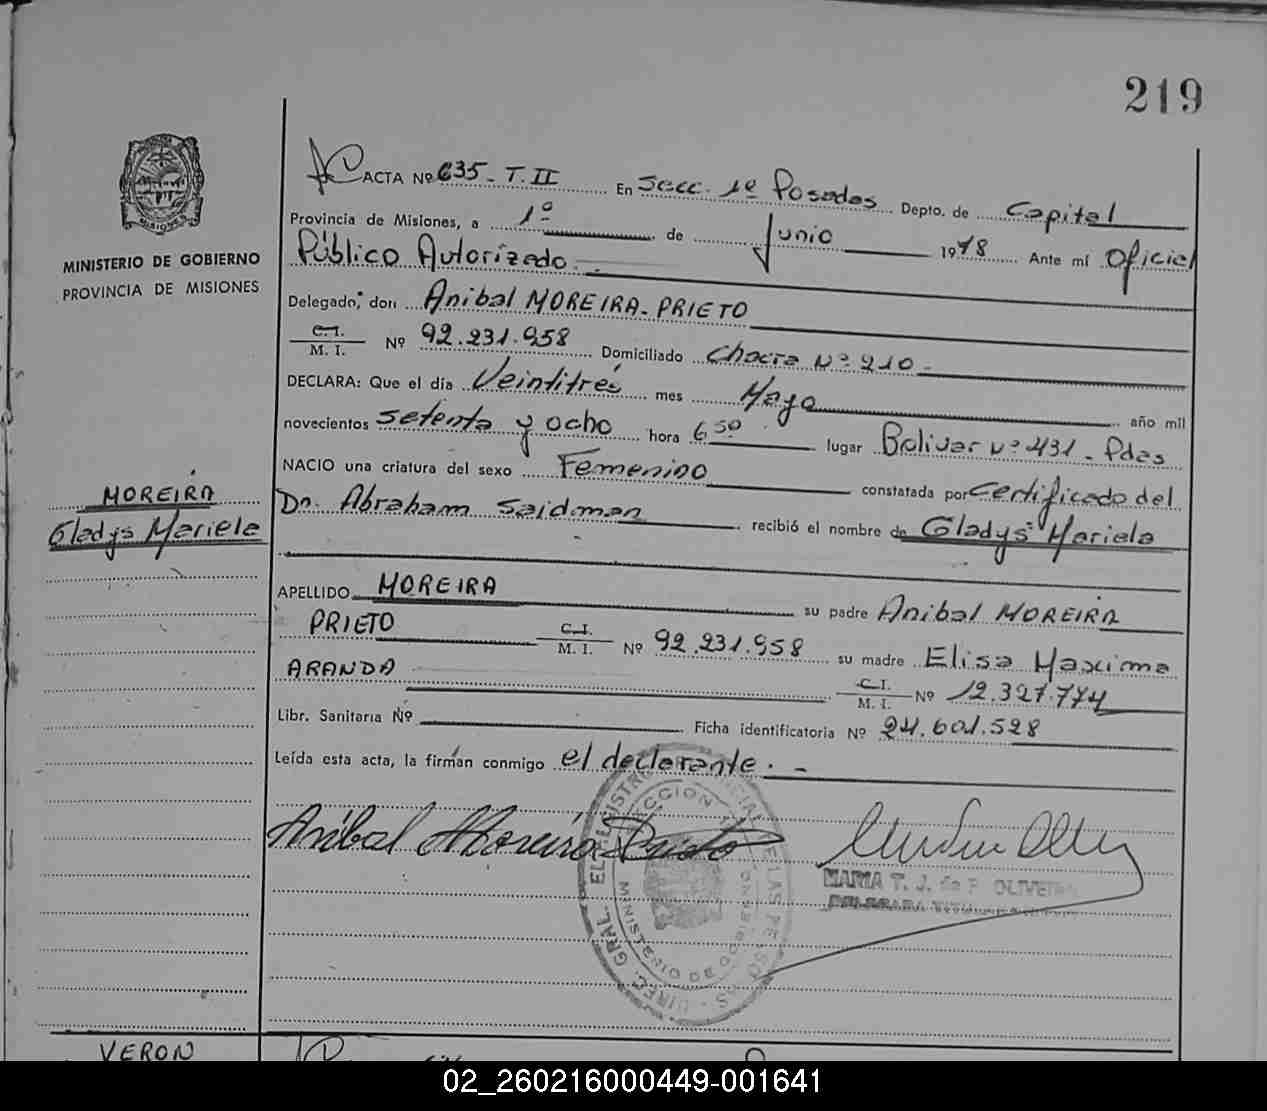 219
ACTA Nº 635 - T. II En Secc. 1º Posadas Depto. de Capital
Provincia de Misiones, a 1º de Junio 1978 Ante mí Oficial
Público Autorizado.
Delegado, don Anibal MOREIRA - PRIETO
C. I.
M. I. Nº 92.231.958 Domiciliado Chacra Nº 210 -
DECLARA: Que el día Veintitrés mes Mayo año mil
novecientos setenta y ocho hora 6 50 lugar Bolivar Nº 431 - Pdas
NACIO una criatura del sexo Femenino constatada por Certificado del
Dr. Abraham Saidman recibió el nombre de Gladys Mariela
APELLIDO MOREIRA su padre Anibal MOREIRA
PRIETO C. I.
M. I. Nº 92.231.958 su madre Elisa Maxima
ARANDA C. I.
M. I. Nº 12.327.774
Libr. Sanitaria Nº Ficha identificatoria Nº 24.601.528
Leída esta acta, la firman conmigo el declarante. -
Anibal Moreira Prieto
MARIA T. J. de P. OLIVEIRA
DELEGADA TITULAR
MINISTERIO DE GOBIERNO
PROVINCIA DE MISIONES
MOREIRA
Gladys Mariela
DIREC. GRAL. DEL REGISTRO PROVINCIAL DE LAS PERSONAS
MINISTERIO DE GOBIERNO
VERON
02_260216000449-001641